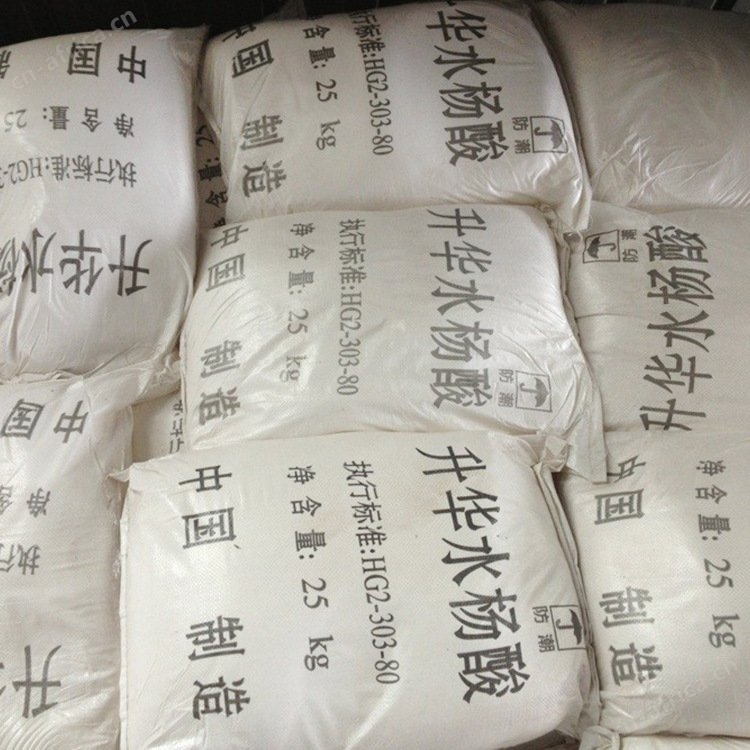 中国
净含量: 25
执行标准:HG2-3
升华水杨
升华水杨酸
防潮
执行标准:HG2-303-80
净含量: 25 kg
中国 制造
升华水杨酸
防潮
执行标准:HG2-303-80
净含量: 25 kg
中国 制造
升华水杨酸
防潮
升华水杨酸
防潮
执行标准:HG2-303-80
净含量: 25 kg
中国 制造
中国
净含
执行
升
净含量: 25 kg
中国 制造